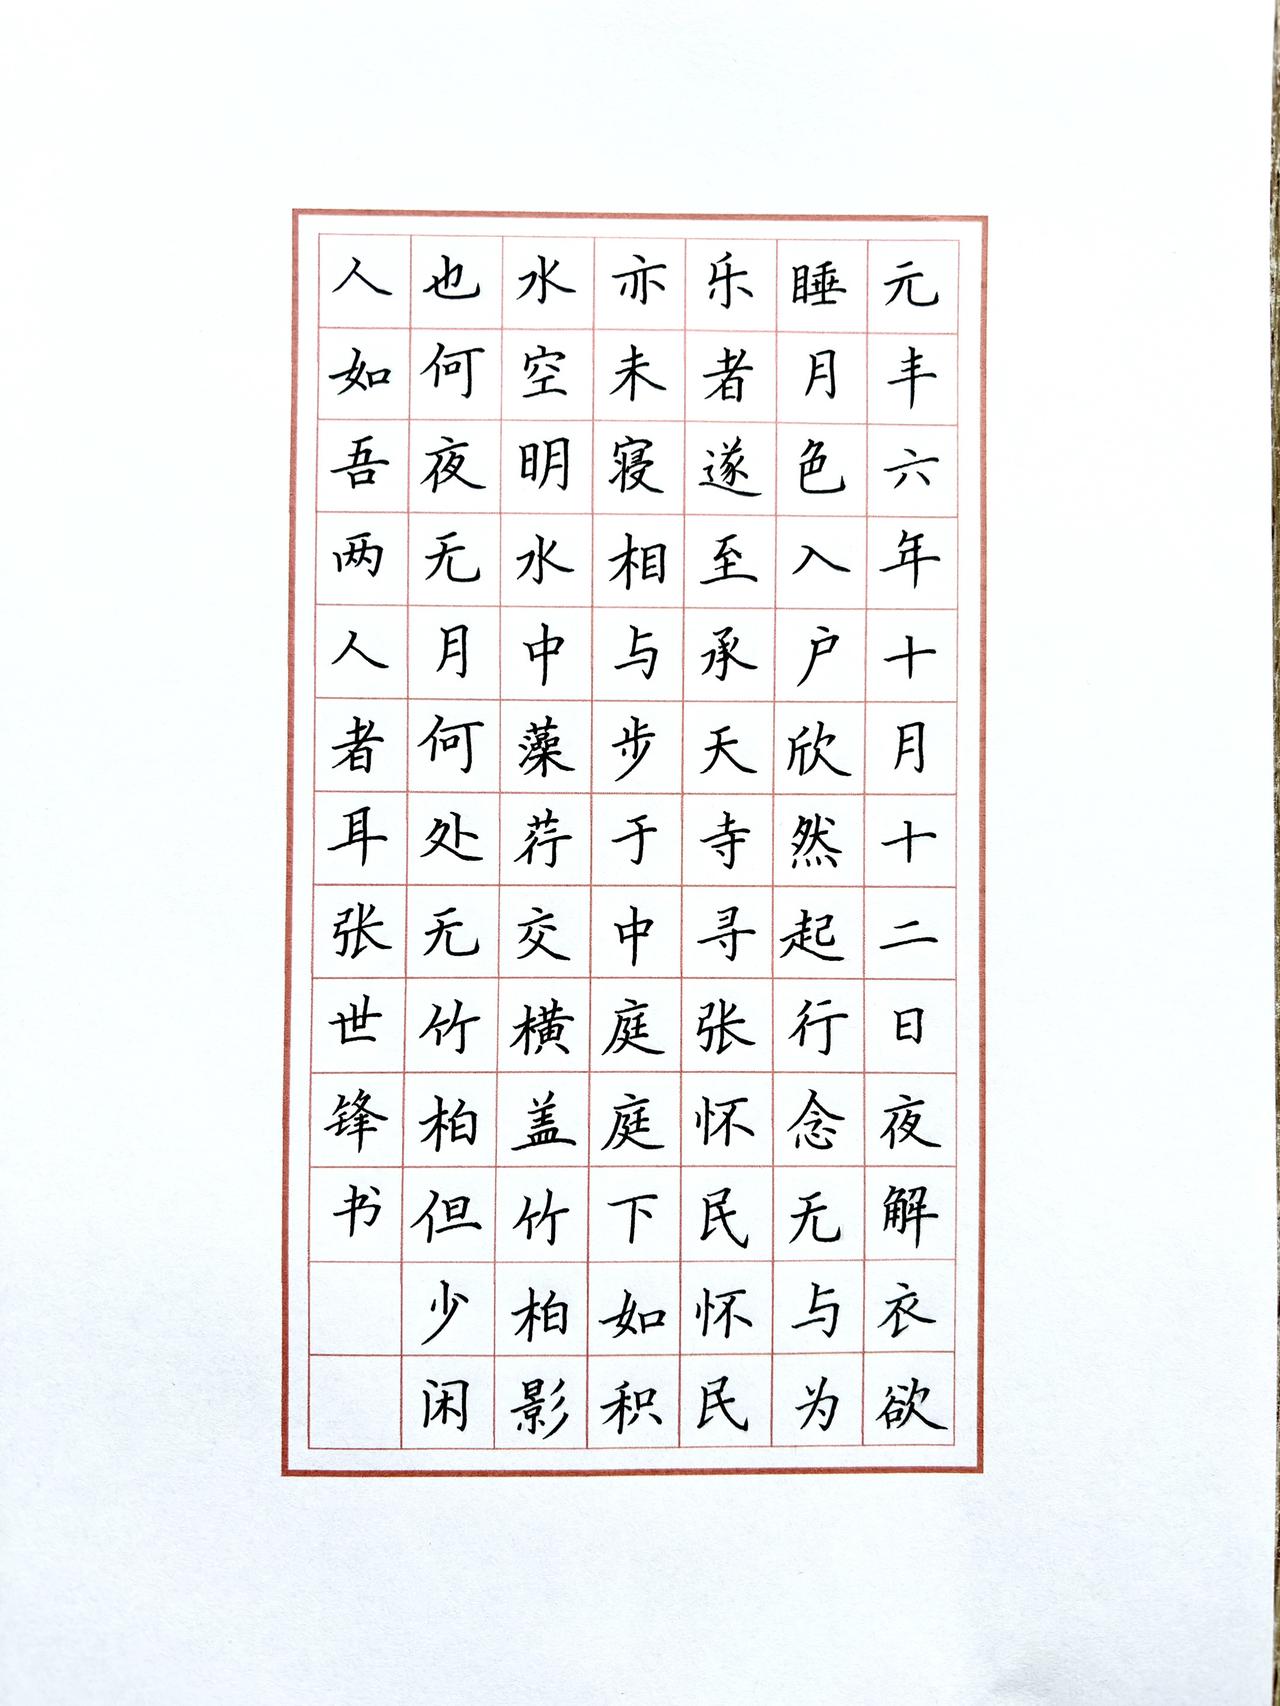 元丰六年十月十二日夜解衣欲
睡月色入户欣然起行念无与为
乐者遂至承天寺寻张怀民怀民
亦未寝相与步于中庭庭下如积
水空明水中藻荇交横盖竹柏影
也何夜无月何处无竹柏但少闲
人如吾两人者耳张世锋书